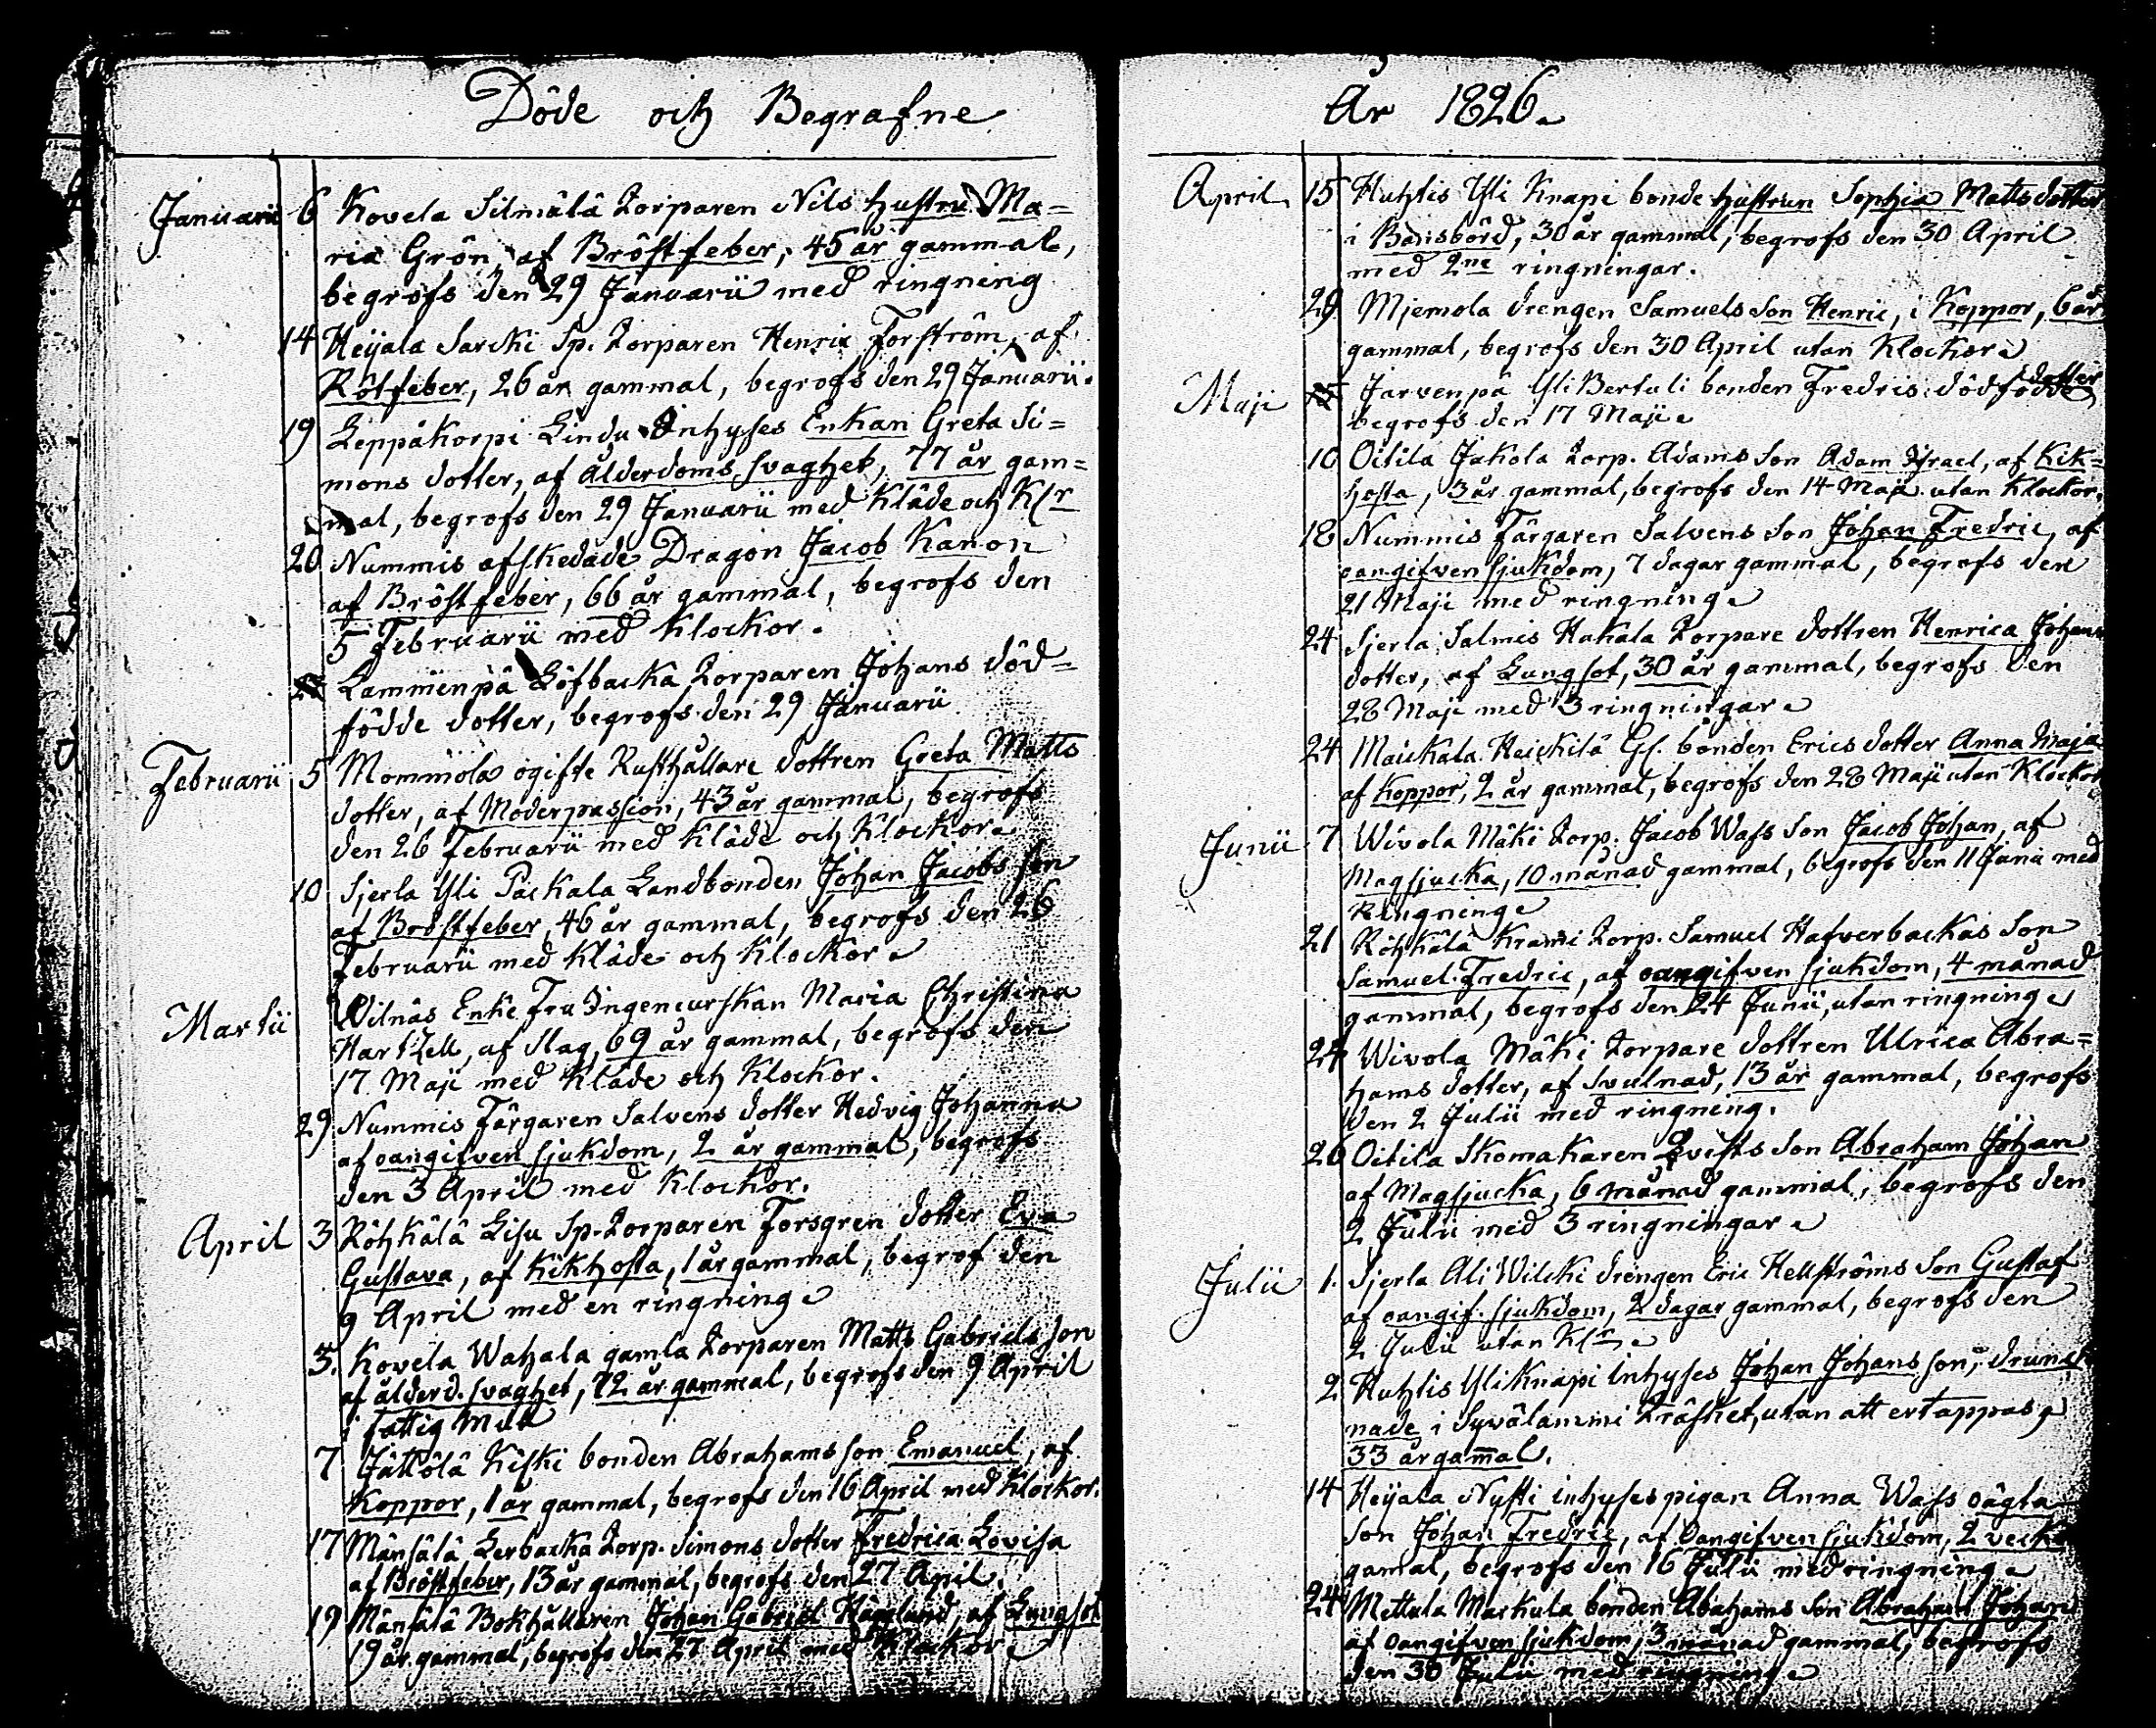 Döde och Begrafne
Januarii 6 Kovela Silmälä Torparen Nils hustru Ma=
ria Grön, af Bröstfeber, 45 år gammal,
begrofs den 29 Januarii med ringning
14 Heijala Sarcki Sp. Torparen Henric Forström, af
Rötfeber, 26 år gammal, begrofs den 29 Januarii.
19 Leppäkorpi Lindu Inhyses Enkan Greta Si=
mons dotter, af ålderdoms svaghet, 77 år gam=
mal, begrofs den 29 Januarii med Kläde och Klr
20 Nummis afskedade Dragon Jacob Kanon
af Bröstfeber, 66 år gammal, begrofs den
5 Februarii med Klockor.
Lammienpä Löfbacka Torparen Johans död=
födde dotter, begrofs den 29 Januarii
Februarii 5 Mommola ogifte Rusthållare dottren Greta Matts
dotter, af Moderpassion, 43 år gammal, begrofs
den 26 Februarii med Kläde och Klockor
10 Sjerla Yli Packala Landbonden Johan Jacobs son
af Bröstfeber, 46 år gammal, begrofs den 26
Februarii med Kläde och Klockor
Martii Wilnäs Enke Fru Ingeneurskan Maria Christina
Hartzell, af Slag, 69 år gammal, begrofs den
17 Maji med Kläde och Klockor.
29 Nummis Färgaren Salvens dotter Hedvig Johanna
af oangifven sjukdom, 2 år gammal, begrofs
den 3 April med Klockor.
April 3 Röhkälä Lisu Sp. Torparen Forsgren dotter Eva
Gustava, af Kikhosta, 1 år gammal, begrof den
9 April med en ringning
3. Kovela Wahala gamla Torparen Matts Gabriels son
af ålderd. svaghet, 72 år gammal, begrofs den 9 April
i fattig Mull
7 Jättölä Kiski bonden Abrahams son Emanuel, af
Koppor, 1 år gammal, begrofs den 16 April med Klockor.
17 Mänsälä Lerbacka Torp. Simons dotter Fredrica Lovisa
af Bröstfeber, 13 år gammal, begrofs den 27 April.
19 Bokhållaren Johan Gabriel Hägglund, af Lungsot
19 år gammal, begrofs den 27 April med Klockor
År 1826
April 15 Huhtis Yli Knapi bonde hustrun Sophia Matts dotter
i Barnsbörd, 30 år gammal, begrofs den 30 April
med 2ne ringningar.
29 Mjemola drengen Samuels Son Henric, i Koppor, 6 år
gammal, begrofs den 30 April utan Klockor
Maji 15 Järvenpä Yli Bertuli bonden Fredrics dödfödde dotter
begrofs den 17 Maji
10 Oitila Jakola Torp. Adams Son Adam Israel, af Kik=
hosta, 3 år gammal, begrofs den 14 Maji utan Klockor,
18 Nummis Färgaren Salvens Son Johan Fredric, af
oangifven sjukdom, 7 dagar gammal, begrofs den
21 Maji med ringning
24 Sjerla Salmis Hakala Torpare dottren Henrica Johans
dotter, af Lungsot, 30 år gammal, begrofs den
28 Maji med 3 ringningar
24 Maickala Heickilä Gl. bonden Erics dotter Anna Maja
af Koppor, 2 år gammal, begrofs den 28 Maji utan Klockor
Junii 7 Wivola Mäki Torp. Jacob Wass Son Jacob Johan, af
Magsjucka, 10 månad gammal, begrofs den 11 Junii med
Ringning
21 Röhkälä Krami Torp. Samuel Hafverbackas Son
Samuel Fredric, af oangifven sjukdom, 4 månad
gammal, begrofs den 24 Junii, utan ringning
24 Wivola Mäki Torpare dottren Ulrica Abra=
hams dotter, af Svulnad, 13 år gammal, begrofs
den 2 Julii med ringning.
26 Oitila Skomakaren Qvists Son Abraham Johan
af Magsjucka, 6 månad gammal, begrofs den
2 Julii med 3 ringningar
Julii 1. Sjerla Ali Wilcki drengen Eric Hellströms Son Gustaf
af oangif. sjukdom, 2 dagar gammal, begrofs den
2 Julii utan Klr
2 Huhtis Yli Knapi Inhyses Johan Johans son, drunck
nade i Syvälammi Träsket, utan att ertappas,
33 år gammal.
14 Heijala Nysti inhyses pigan Anna Wass oägta
Son Johan Fredric, af oangifven sjukdom, 2 vecka
gamal, begrofs den 16 Julii med ringning
24 Mettula Markula bonden Abahams Son Abraham Johan
af oangifven sjukdom, 3 månad gammal, begrofs
den 30 Julii med ringning